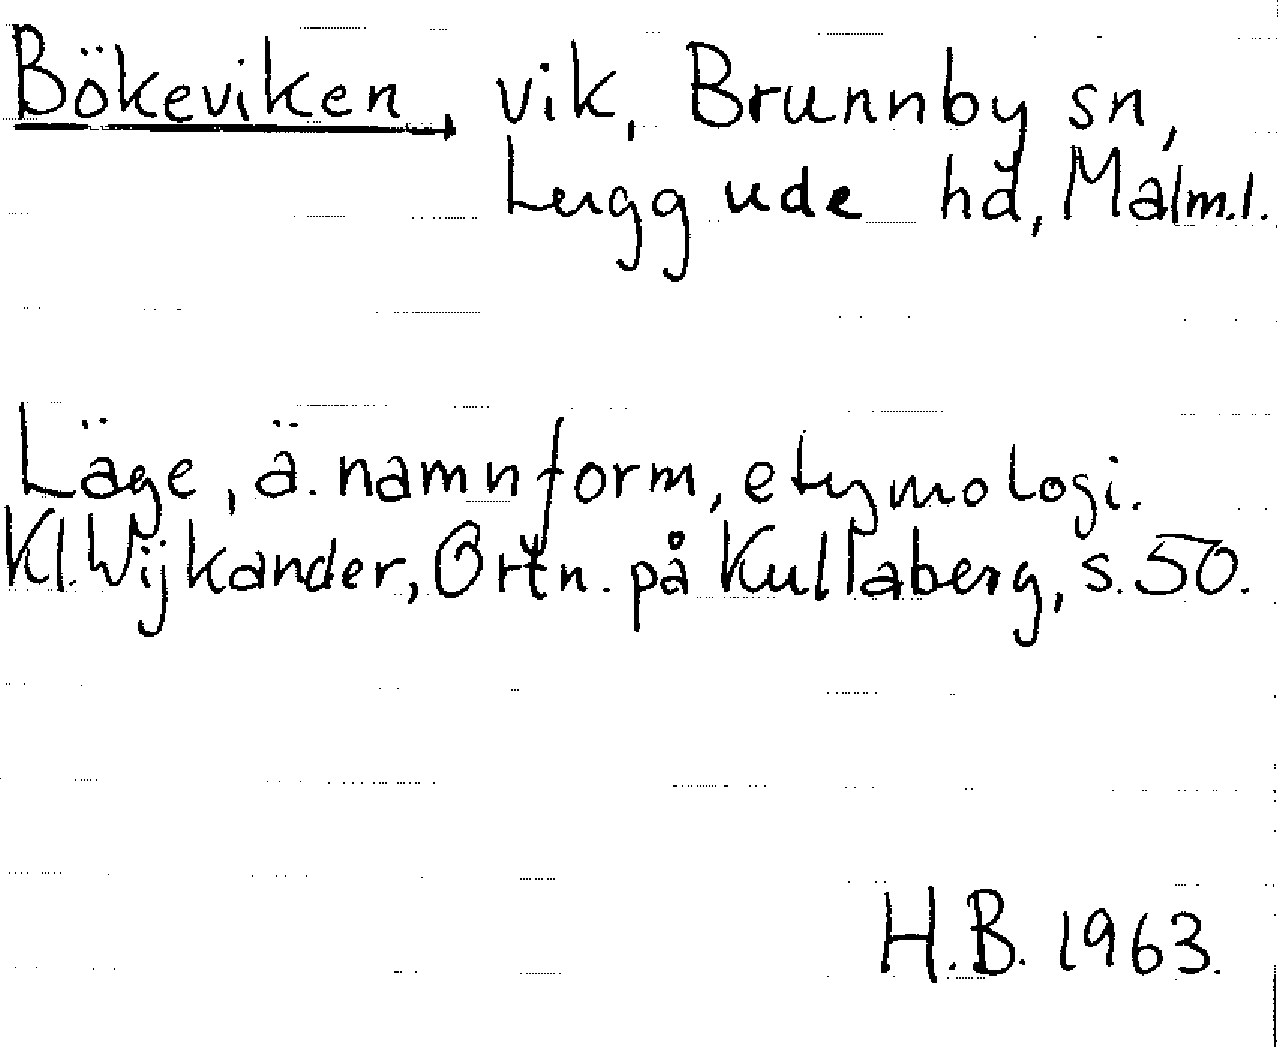 Bökeviken vik, Brunnby sn,
Luggude hd, Malm.l.
Läge, ä. namnform, etymologi.
Kl. Wijkander, Ortn. på Kullaberg, s. 50.
H.B. 1963.